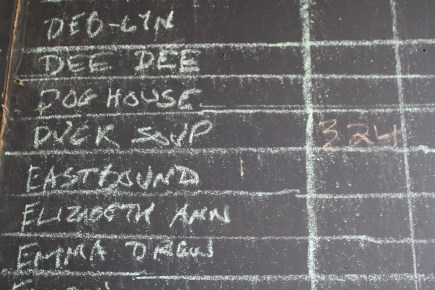 DEB-LYN
DEE DEE
DOG HOUSE
DUCK SOUP 324
EASTBOUND
ELIZABETH ANN
EMMA